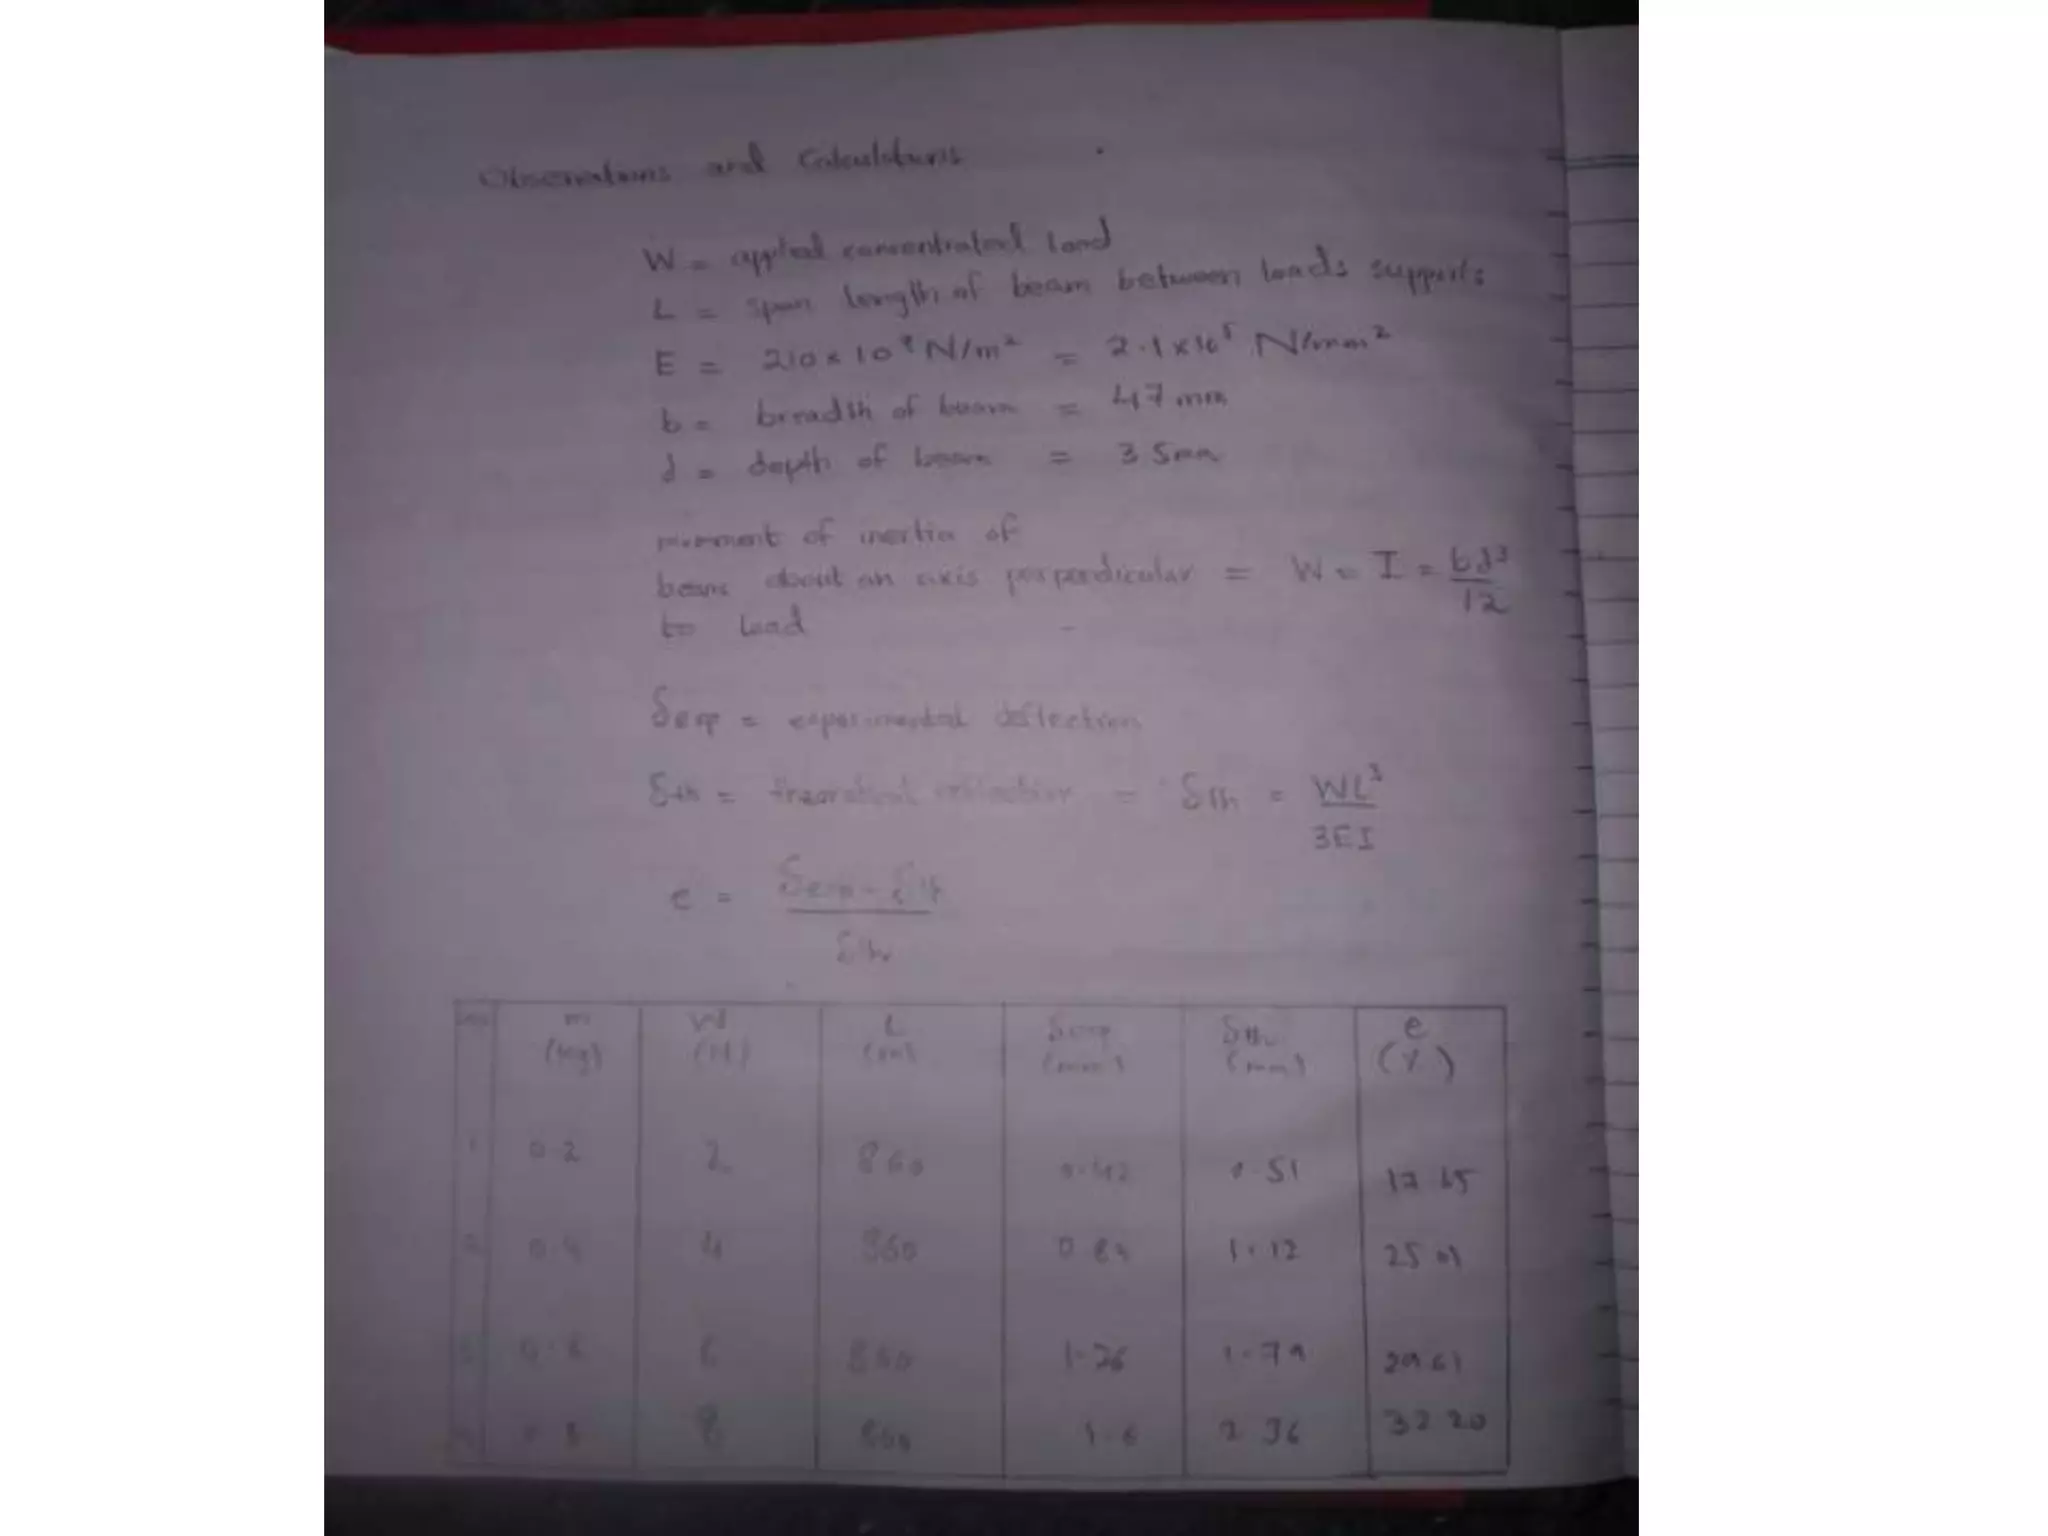 Observations and Calculations
W = applied concentrated load
L = span length of beam between loads supports
E = 210 × 10⁹ N/m² = 2.1 × 10⁵ N/mm²
b = breadth of beam = 47 mm
d = depth of beam = 3 5mm
moment of inertia of
beam about an axis perpendicular = W = I = bd³/12
to load
δexp = experimental deflection
δth = theoretical deflection = δth = WL³/3EI
e = δexp - δth/δth
m W L δexp δth e
(kg) (N) (mm) (mm) (%)
1 0.2 2 860 0.42 0.51 17.65
2 0.4 4 860 0.84 1.12 25.01
6 860 1.26 1.79 29.61
8 1.6 2.36 32.20